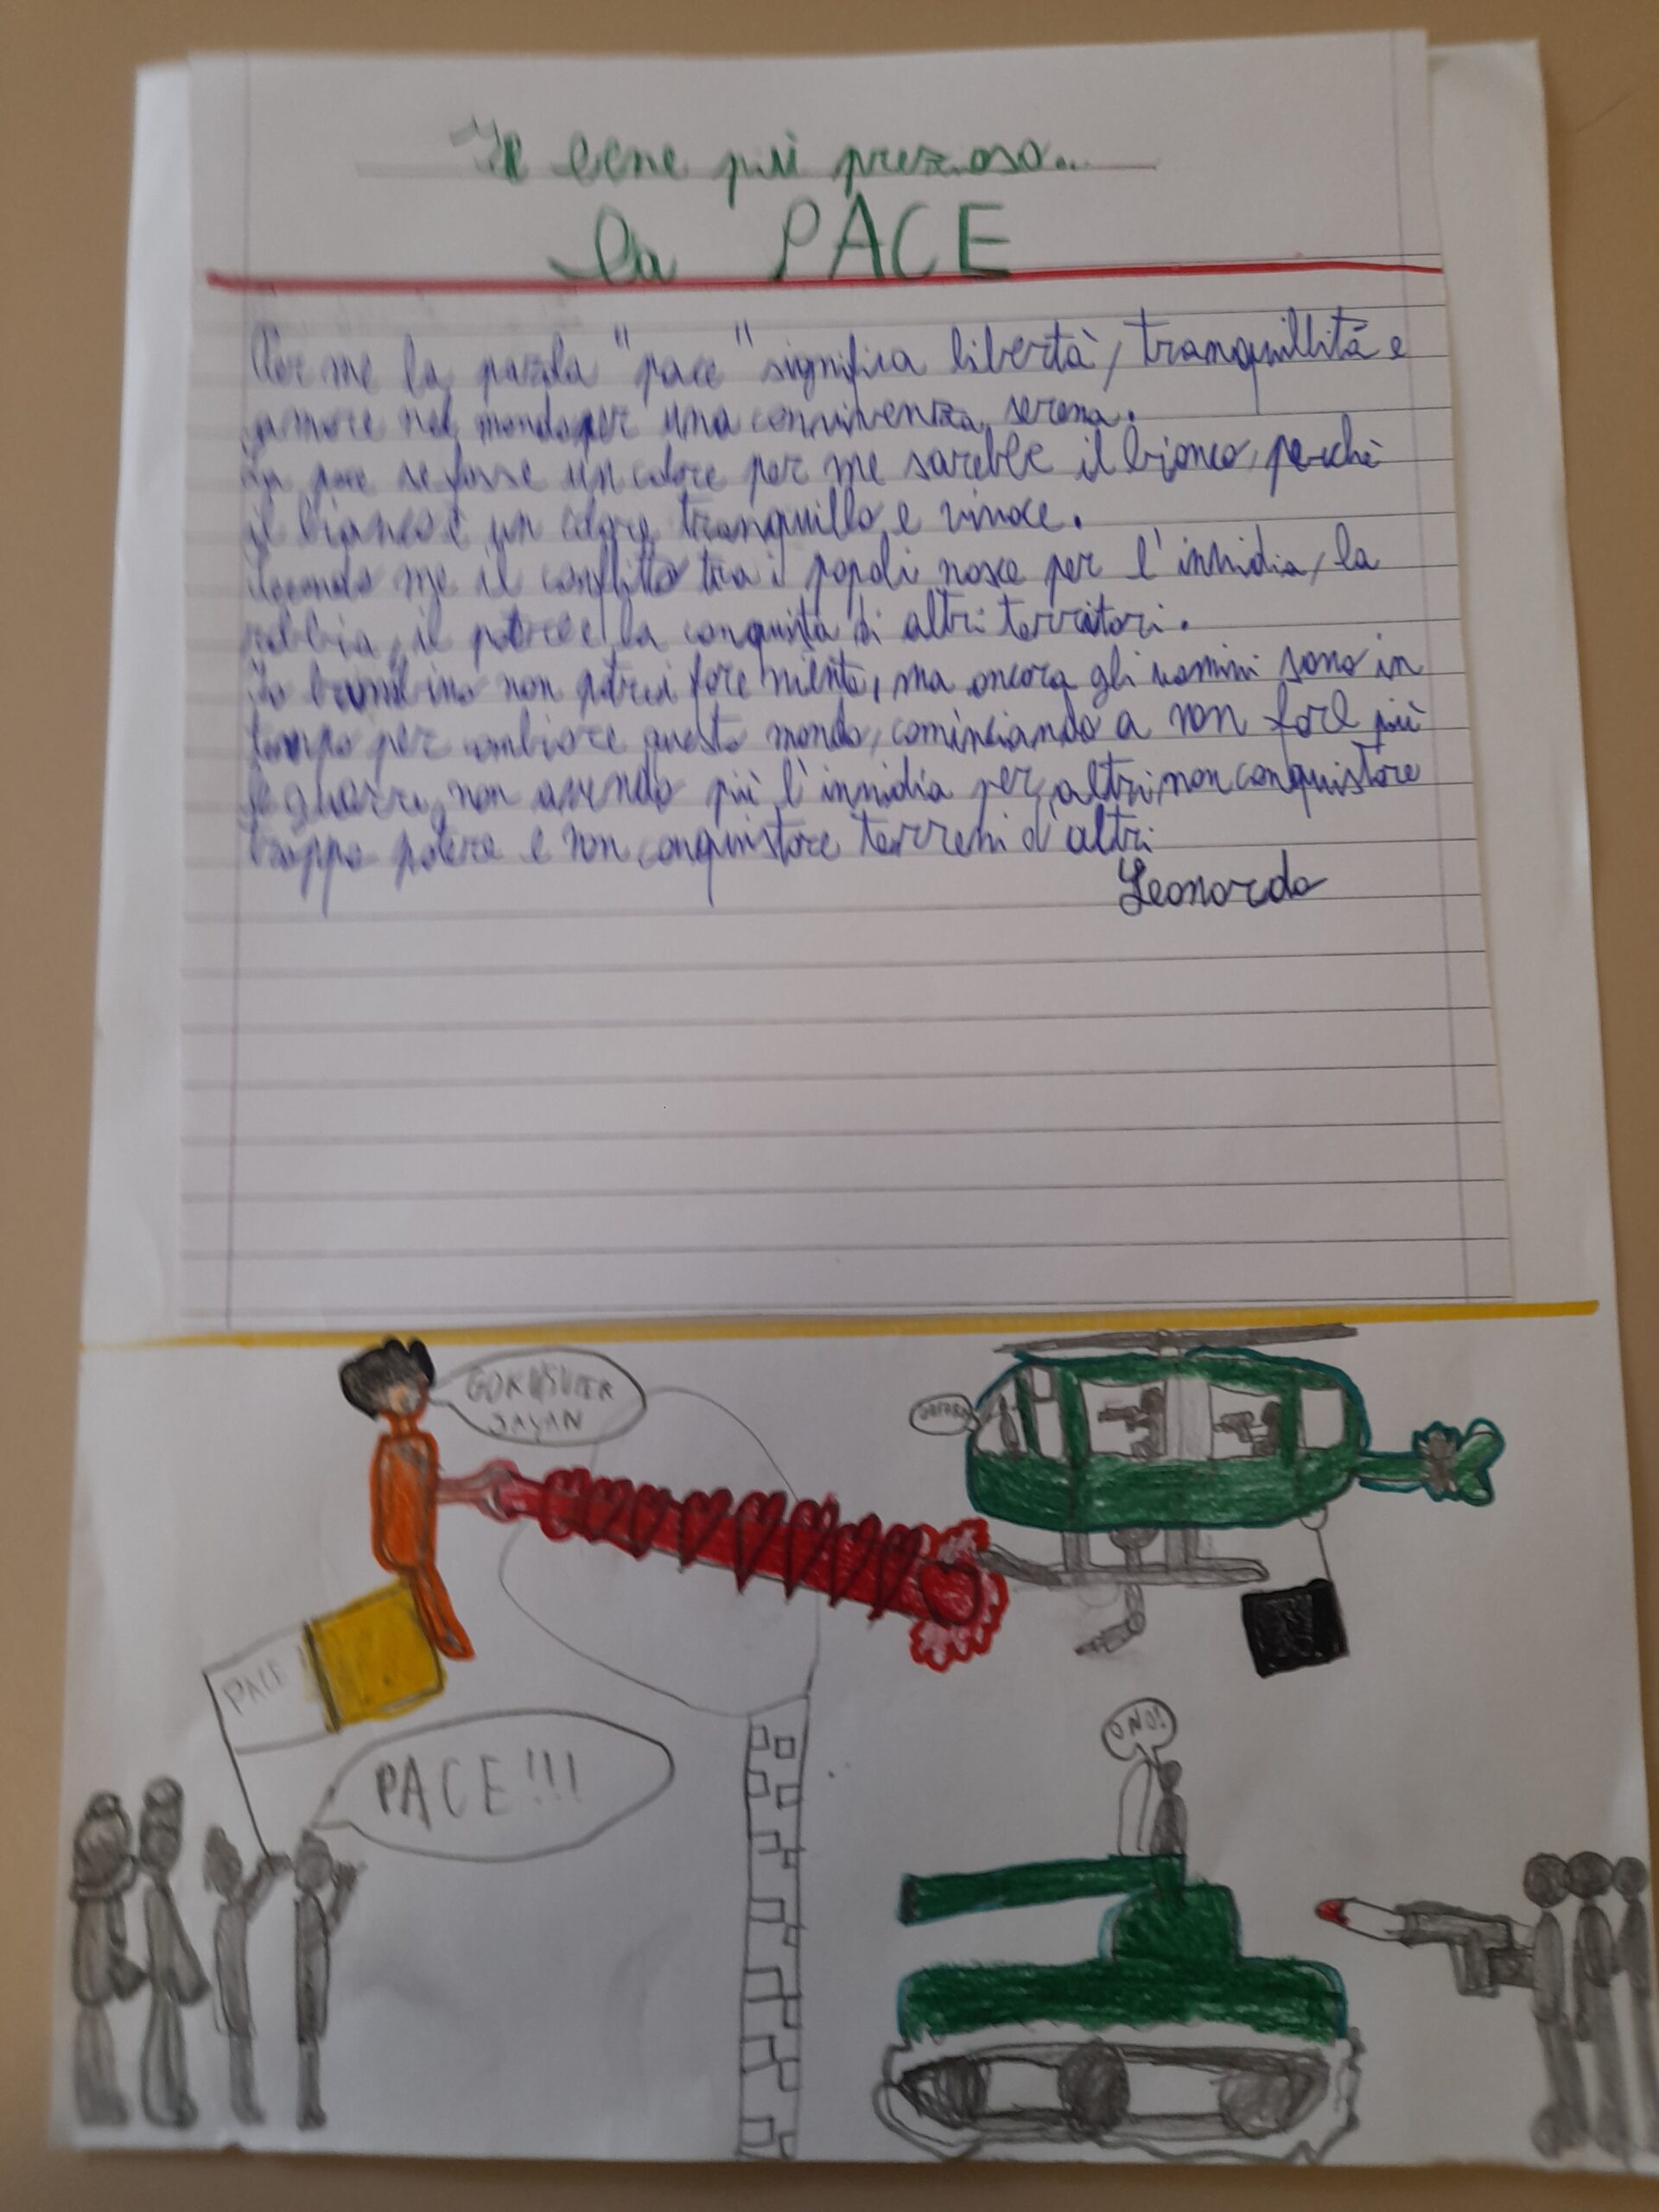 Il bene più prezioso...
la PACE
Per me la parola "pace" significa libertà, tranquillità e
amore nel mondo per una convivenza serena.
La pace se fosse un colore per me sarebbe il bianco, perchè
il bianco è un colore tranquillo e vivace.
Secondo me il conflitto tra i popoli nasce per l'invidia, la
rabbia, il potere e la conquista di altri territori.
Io bambino non potrei fare niente, ma ancora gli uomini sono in
tempo per cambiare questo mondo, cominciando a non fare più
le guerre, non avendo più l'invidia per altri, non conquistare
troppo potere e non conquistare terreni d'altri
Leonardo
GOKU SUPER
SAYAN
PACE
PACE!!!
O NO!